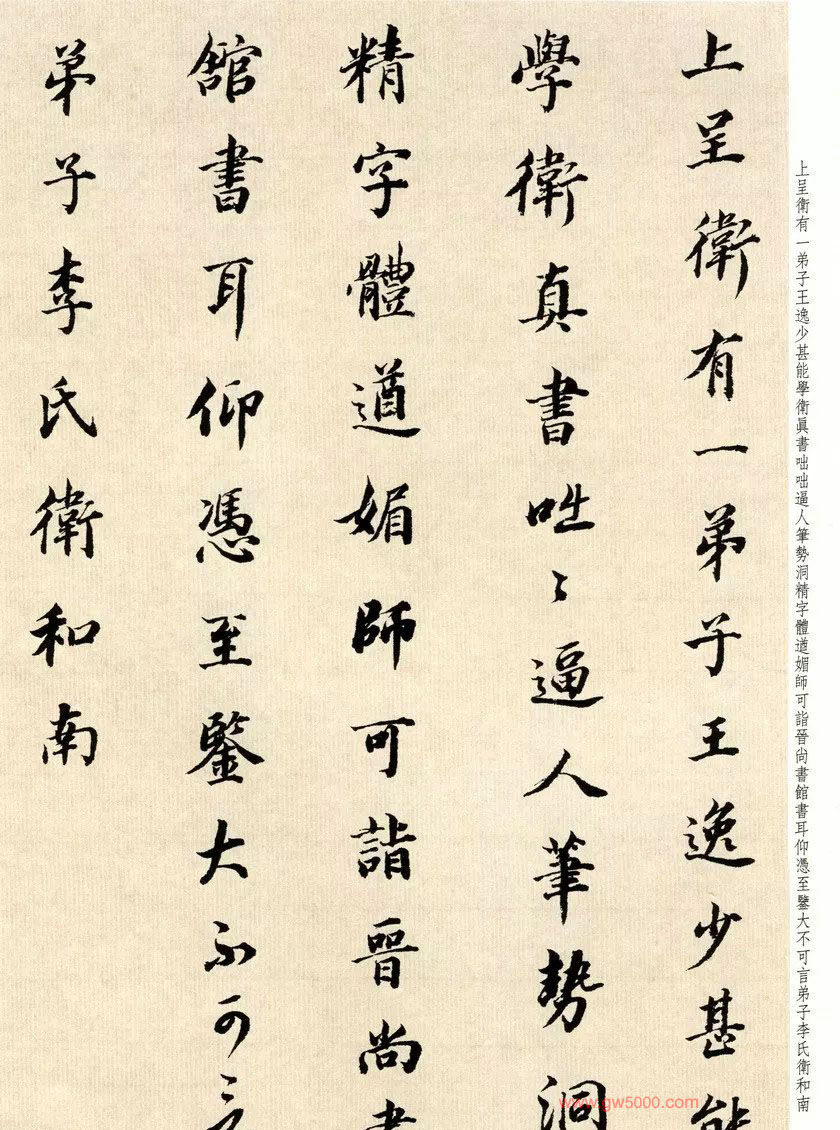 上呈衛有一弟子王逸少甚能
學衛真書咄〻逼人筆勢洞
精字體遒媚師可詣晉尚書
館書耳仰憑至鑒大不可言
弟子李氏衛和南
上呈衛有一弟子王逸少甚能學衛眞書咄咄逼人筆勢洞精字體遒媚師可詣晉尙書館書耳仰憑至鑒大不可言弟子李氏衛和南
www.gw5000.com